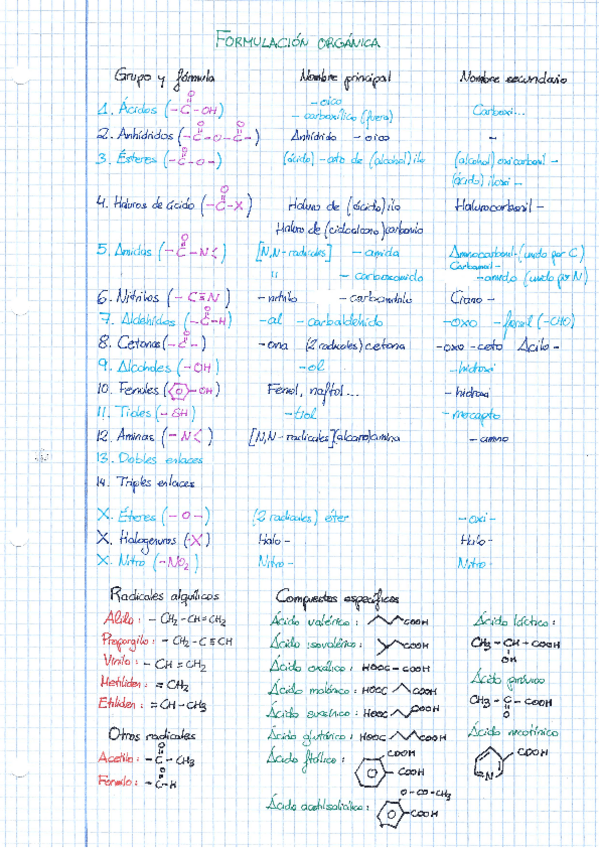 FORMULACIÓN ORGÁNICA
Grupo y fórmula Nombre principal Nombre secundario
1. Ácidos (-C-OH) -oico Carboxi...
O
- carboxílico (fuera)
2. Anhídridos (-C-O-C-) Anhídrido -oico -
O O
3. Ésteres (-C-O-) (ácido)-ato de (alcohol)ilo (alcohol)oxicarbonil-
O
(ácido)iloxi-
4. Haluros de ácido (-C-X) Haluro de (ácido)ilo Halurocarbonil-
O
Haluro de (cicloalcano)carbonilo
5. Amidas (-C-N<) [N,N-radicales] -amida Aminocarbonil- (unido por C)
O
Carbamoil-
" - carboxamida -amido (unido por N)
6. Nitrilos (-C≡N) -nitrilo -carbonitrilo Ciano-
7. Aldehídos (-C-H) -al -carbaldehído -oxo -formil (-CHO)
O
8. Cetonas (-C-) -ona (2 radicales) cetona -oxo -ceto Acilo-
O
9. Alcoholes (-OH) -ol -hidroxi
10. Fenoles (-OH) Fenol, naftol... -hidroxi
11. Tioles (-SH) -tiol -mercapto
12. Aminas (-N<) [N,N-radicales](alcano)amina -amino
13. Dobles enlaces
14. Triples enlaces
X. Éteres (-O-) (2 radicales) éter -oxi-
X. Halogenuros (-X) Halo- Halo-
X. Nitro (-NO2) Nitro- Nitro-
Radicales alquílicos Compuestos específicos
Alilo: -CH2-CH=CH2 Ácido valérico: COOH Ácido láctico:
Propargilo: -CH2-C≡CH Ácido isovalérico: COOH CH3-CH-COOH
OH
Vinilo: -CH=CH2 Ácido oxálico: HOOC-COOH
Metiliden: =CH2 Ácido malónico: HOOC COOH Ácido pirúvico
Etiliden: =CH-CH3 Ácido succínico: HOOC COOH CH3-C-COOH
O
Otros radicales Ácido glutárico: HOOC COOH Ácido nicotínico
Acetilo: -C-CH3 Ácido ftálico: COOH COOH
O
COOH N
Formilo: -C-H
O
Ácido acetilsalicílico: O-CO-CH3
COOH